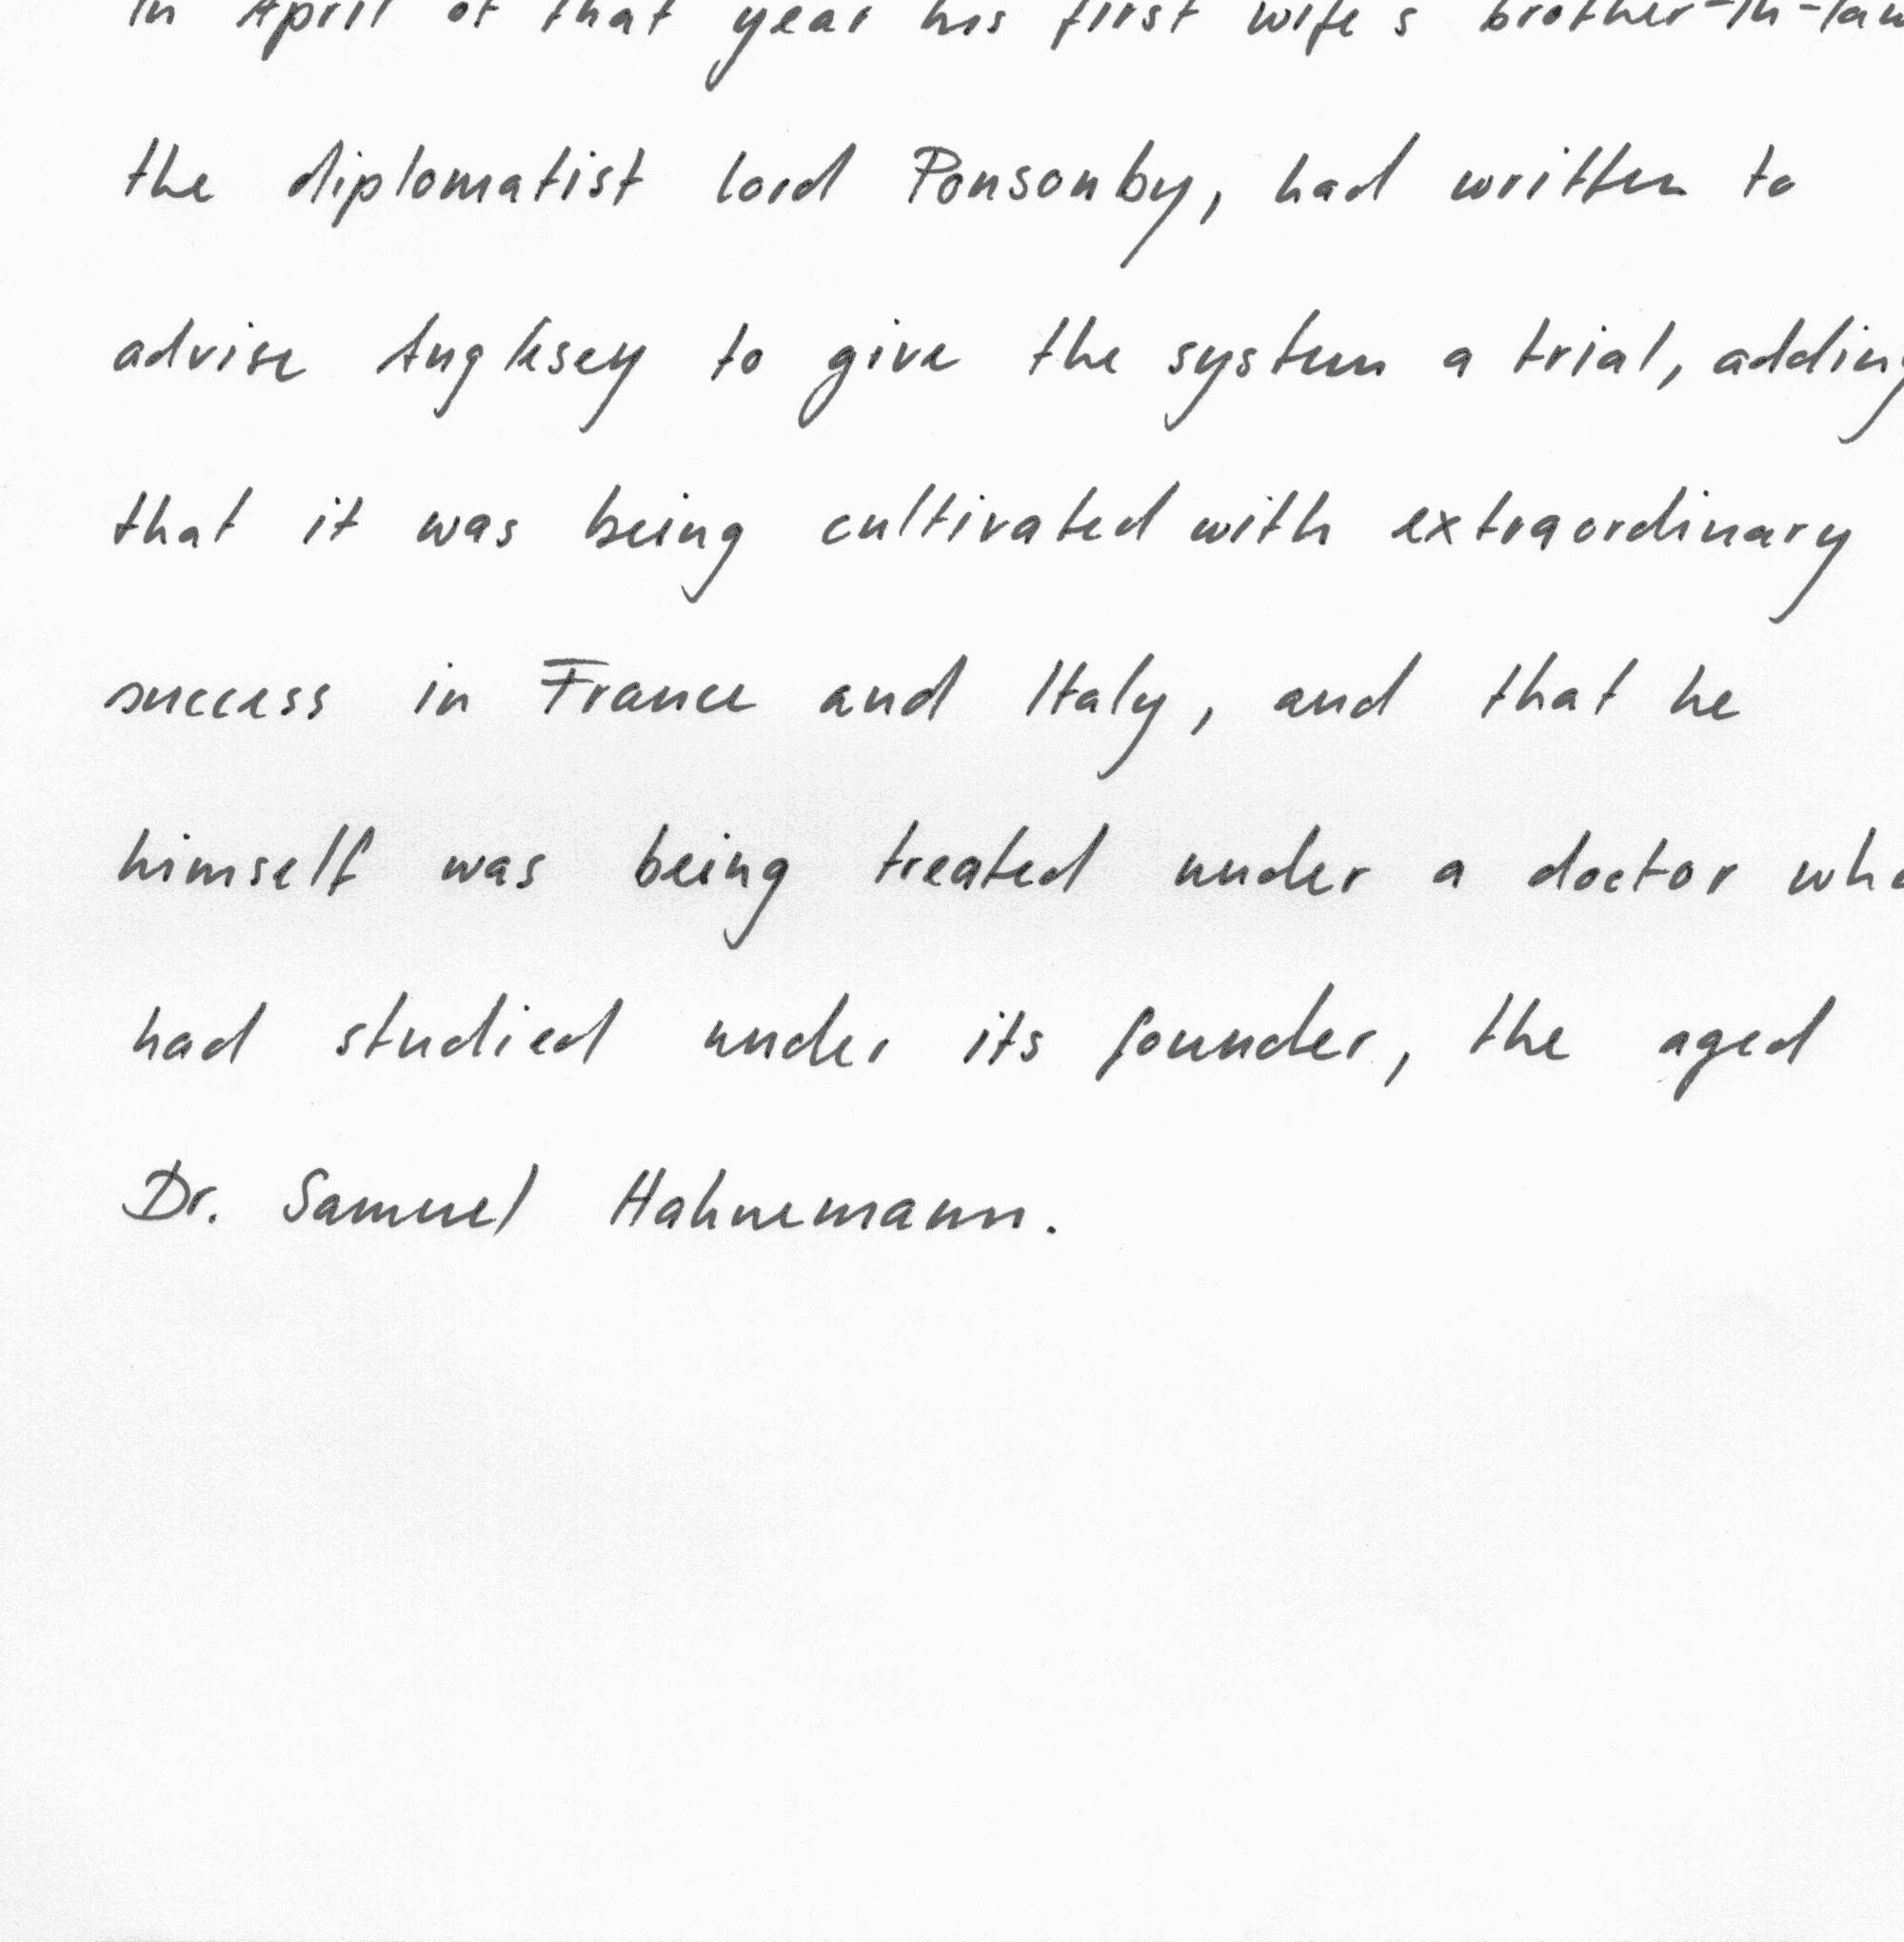 In April of that year his first wife's brother-in-law
the diplomatist lord Ponsonby, had written to
advise Anglesey to give the system a trial, adding
that it was being cultivated with extraordinary
success in France and Italy, and that he
himself was being treated under a doctor who
had studied under its founder, the aged
Dr. Samuel Hahnemann.